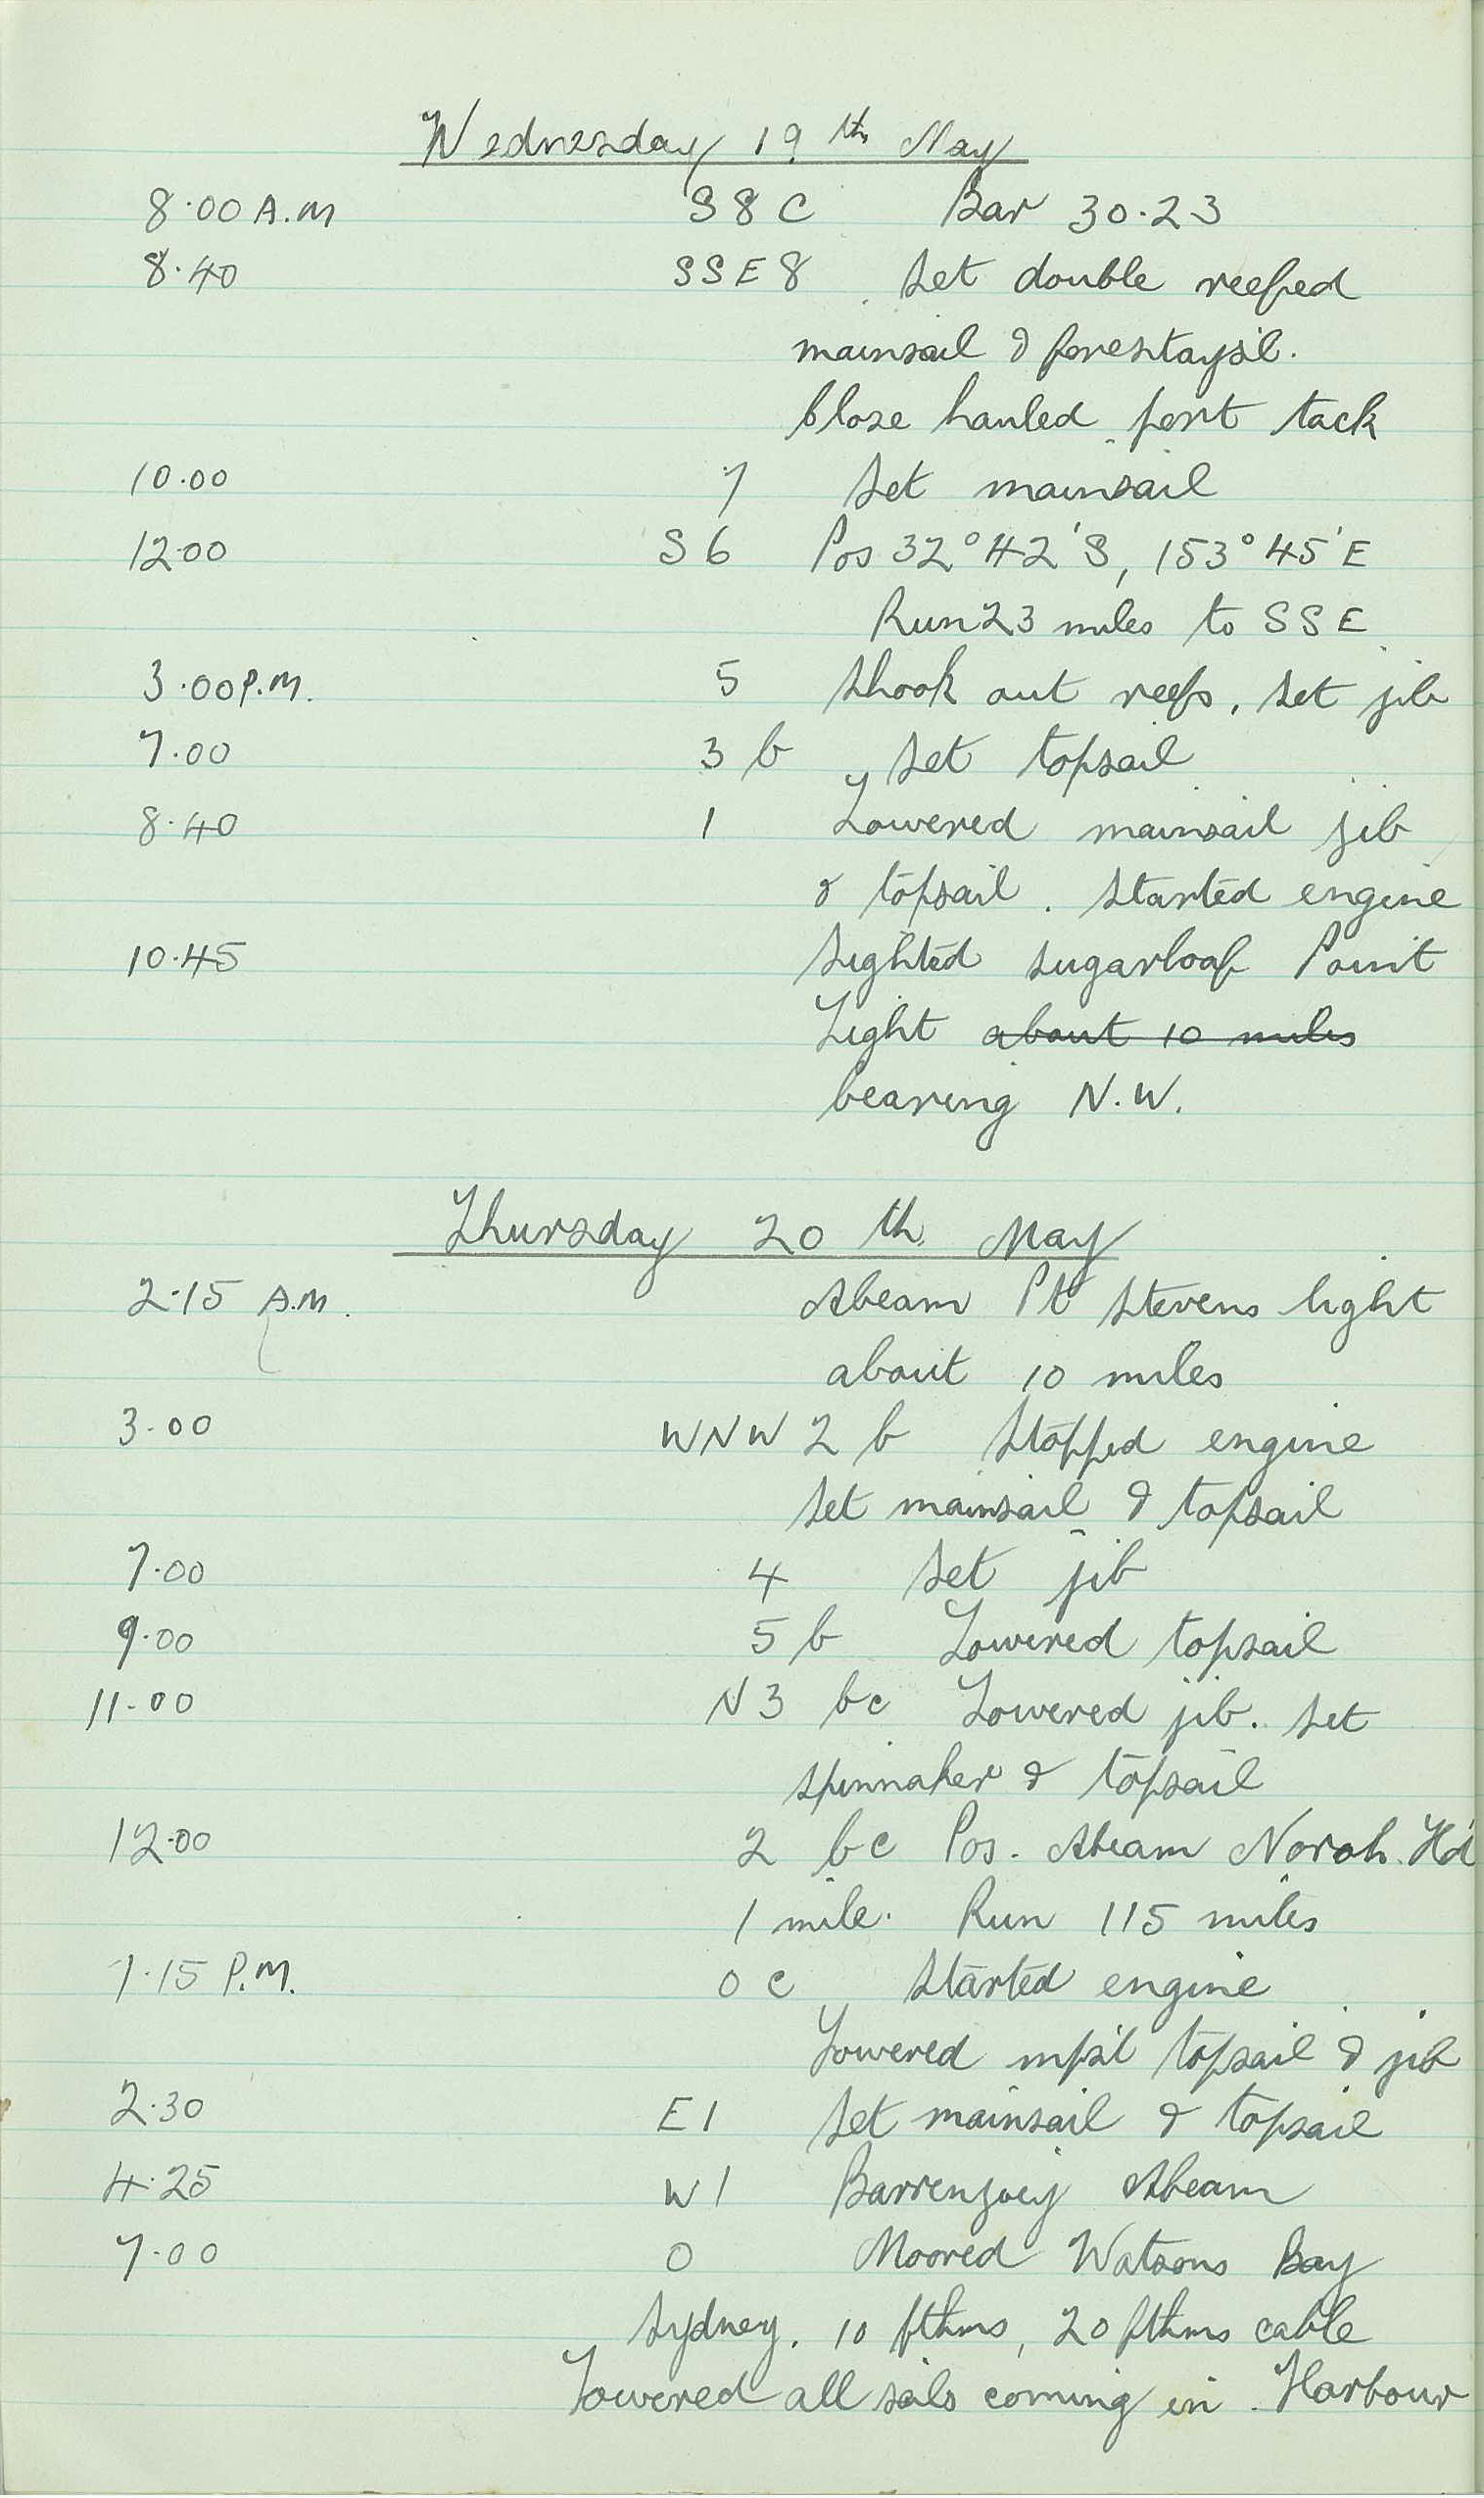 Wednesday 19th May
8.00 A.M S 8 C Bar 30.23
8.40 SSE 8 Set double reefed
mainsail & forestaysil.
Close hauled port tack
10.00 7 Set mainsail
12.00 S 6 Pos 32° 42' S, 153° 45' E
Run 23 miles to SSE
3.00 P.M. 5 Shook out reefs, Set jib
7.00 3 b Set topsail
8.40 1 Lowered mainsail jib
& topsail. Started engine
10.45 Sighted Sugarloaf Point
Light ~~about 10 miles~~
bearing N.W.
Thursday 20th May
2.15 A.M. Abeam Pt Stevens light
about 10 miles
3.00 WNW 2 b Stopped engine
Set mainsail & topsail
7.00 4 Set jib
9.00 5 b Lowered topsail
11.00 N 3 bc Lowered jib. Set
spinnaker & topsail
12.00 2 bc Pos. Abeam Norah Hd
1 mile. Run 115 miles
1.15 P.M. 0 c Started engine
Lowered topsail & jib
2.30 E 1 Set mainsail & topsail
4.25 W 1 Barrenjoey Abeam
7.00 0 Moored Watsons Bay
Sydney. 10 fthms, 20 fthms cable
Lowered all sails coming in Harbour